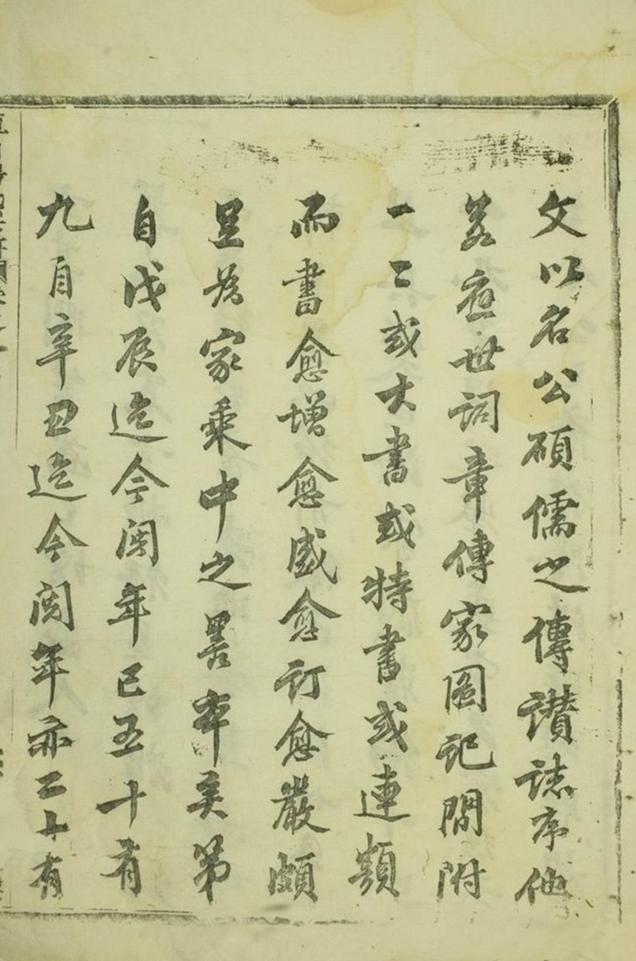 文以名公碩儒之傳讃誌序他
若應世詞章傳家圖記間附
一二或大書或特書或連類
而書愈增愈盛愈訂愈嚴頗
足為家乗中之善本矣第
自戊辰迄今閱年已五十有
九自辛丑迄今閱年亦二十有